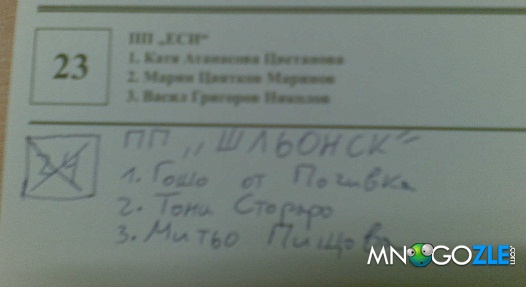 ПП „ЕСИ“
23
1. Катя Атанасова Цветанова
2. Марин Цветков Маринов
3. Васил Григоров Николов
24
ПП „ШЛЬОНСК“
1. Гошо от Почивка
2. Тони Стораро
3. Митьо Пищова
MNOGOZLE.com